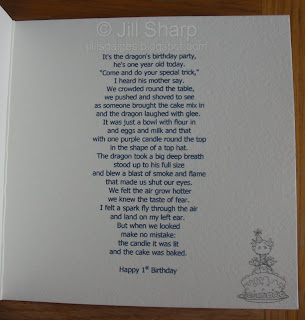 © Jill Sharp
It's the dragon's birthday party,
he's one year old today.
"Come and do your special trick,"
I heard his mother say.
We crowded round the table,
we pushed and shoved to see
as someone brought the cake mix in
and the dragon laughed with glee.
It was just a bowl with flour in
and eggs and milk and that
with one purple candle round the top
in the shape of a top hat.
The dragon took a big deep breath
stood up to his full size
and blew a blast of smoke and flame
that made us shut our eyes.
We felt the air grow hotter
we knew the taste of fear.
I felt a spark fly through the air
and land on my left ear.
But when we looked
make no mistake:
the candle it was lit
and the cake was baked.
Happy 1st Birthday